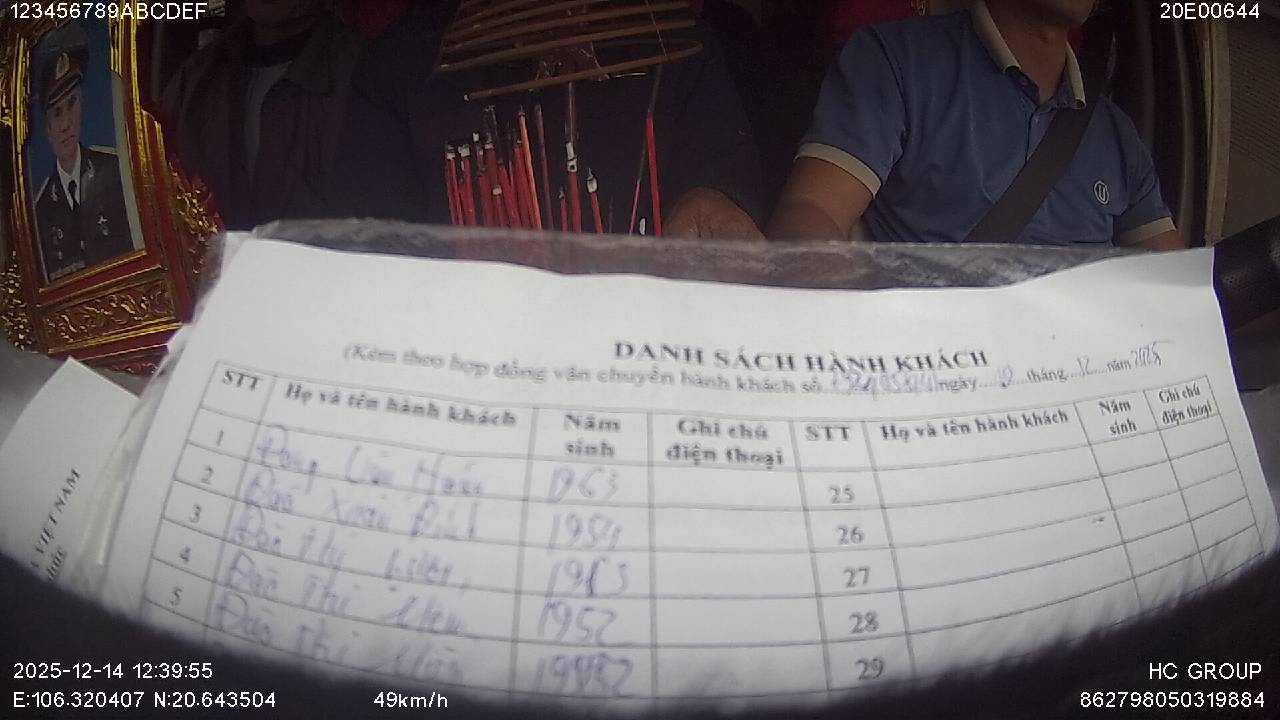 123456789ABCDEF
20E00644
DANH SÁCH HÀNH KHÁCH
(Kèm theo hợp đồng vận chuyển hành khách số ngày 12 tháng 12 năm 2025
STT Họ và tên hành khách Năm sinh Ghi chú điện thoại STT Họ và tên hành khách Năm sinh Ghi chú điện thoại
1 1963 25
2 Đào Xoan 1954 26
3 Đào Thị 27
4 Đào Thị 1952 28
5 Đào Thị 29
VIỆT NAM
2025-12-14 12:39:55
HC GROUP
E:106.320407 N:20.643504
49km/h
862798050319884